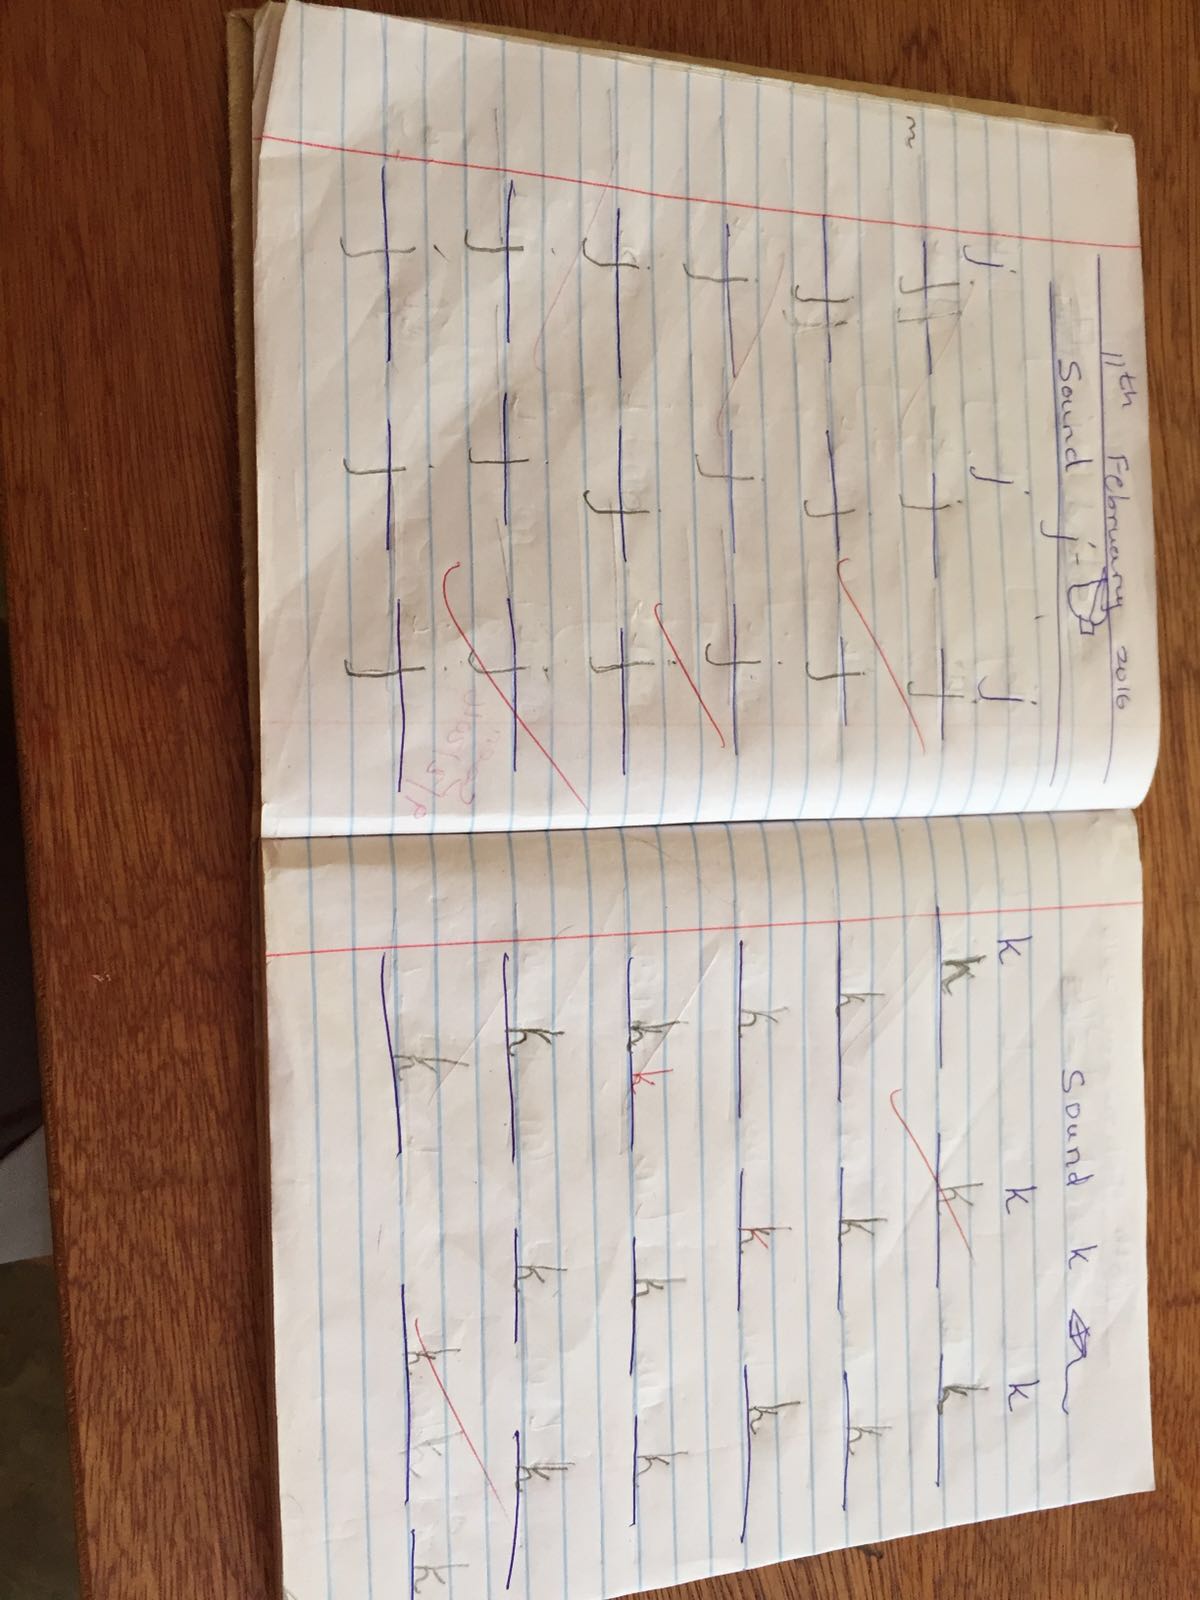 11th February 2016
Sound j -
j j j
jj j j
jj j j
j j j
j j j
j j j
j j j
Sound k
k k k
k k k
k k k
k k k
k k k k
k k k
k k k